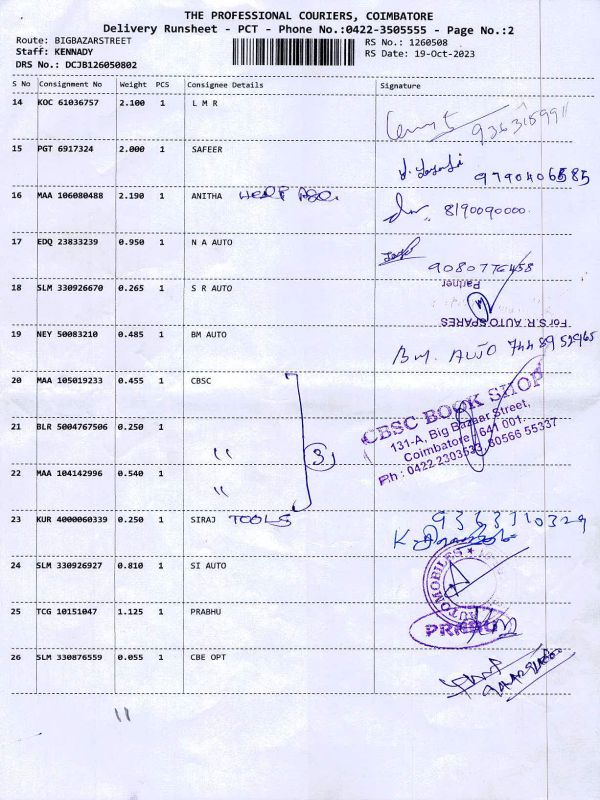 THE PROFESSIONAL COURIERS, COIMBATORE
Delivery Runsheet - PCT - Phone No.:0422-3505555 - Page No.:2
Route: BIGBAZARSTREET RS No.: 1260508
Staff: KENNADY RS Date: 19-Oct-2023
DRS No.: DCJB126050802
S No Consignment No Weight PCS Consignee Details Signature
14 KOC 61036757 2.100 1 L M R
15 PGT 6917324 2.000 1 SAFEER
9790406585
16 MAA 106080488 2.190 1 ANITHA
8190090000.
17 EDQ 23833239 0.950 1 N A AUTO
9080776458
18 SLM 330926670 0.265 1 S R AUTO
Partner
For S.R. AUTO SPARES
19 NEY 50083210 0.485 1 BM AUTO
BM. AUTO
20 MAA 105019233 0.455 1 CBSC
CBSC BOOK SHOP
131-A, Big Bazaar Street,
Coimbatore - 641 001.
Ph : 0422 2303533, 80566 55337
21 BLR 5004767506 0.250 1
" 3
22 MAA 104142996 0.540 1
"
23 KUR 4000060339 0.250 1 SIRAJ TOOLS
9363310329
24 SLM 330926927 0.810 1 SI AUTO
AUTOMOBILES
25 TCG 10151047 1.125 1 PRABHU
PRABHU
26 SLM 330876559 0.055 1 CBE OPT
11